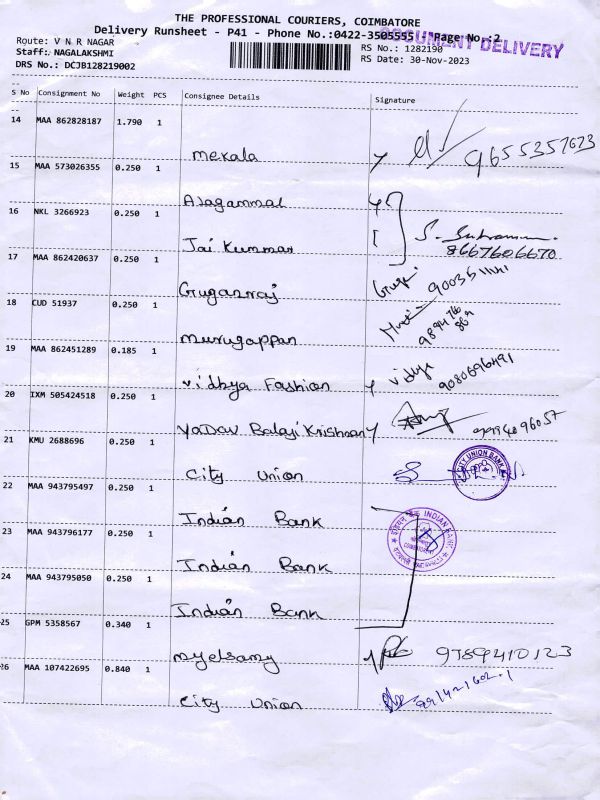 THE PROFESSIONAL COURIERS, COIMBATORE
Delivery Runsheet - P41 - Phone No.:0422-3505555 Page No.:2
DOCUMENT DELIVERY
Route: V N R NAGAR
RS No.: 1282190
Staff: NAGALAKSHMI
RS Date: 30-Nov-2023
DRS No.: DCJB128219002
S No Consignment No Weight PCS Consignee Details Signature
14 MAA 862828187 1.790 1
mekala 9655357623
15 MAA 573026355 0.250 1
Alagammal
16 NKL 3266923 0.250 1
Jai Kummar 8667606670
17 MAA 862420637 0.250 1
Guganraj
18 CUD 51937 0.250 1
murugappan
19 MAA 862451289 0.185 1
vidhya Fashion vidhya 9080696491
20 IXM 505424518 0.250 1
Yadav Balaji Krishnan
21 KMU 2688696 0.250 1
City Union CITY UNION BANK
22 MAA 943795497 0.250 1
Indian Bank
23 MAA 943796177 0.250 1
Indian Bank INDIAN BANK
24 MAA 943795050 0.250 1
Indian Bank
25 GPM 5358567 0.340 1
myelsamy 9789410123
26 MAA 107422695 0.840 1
City Union